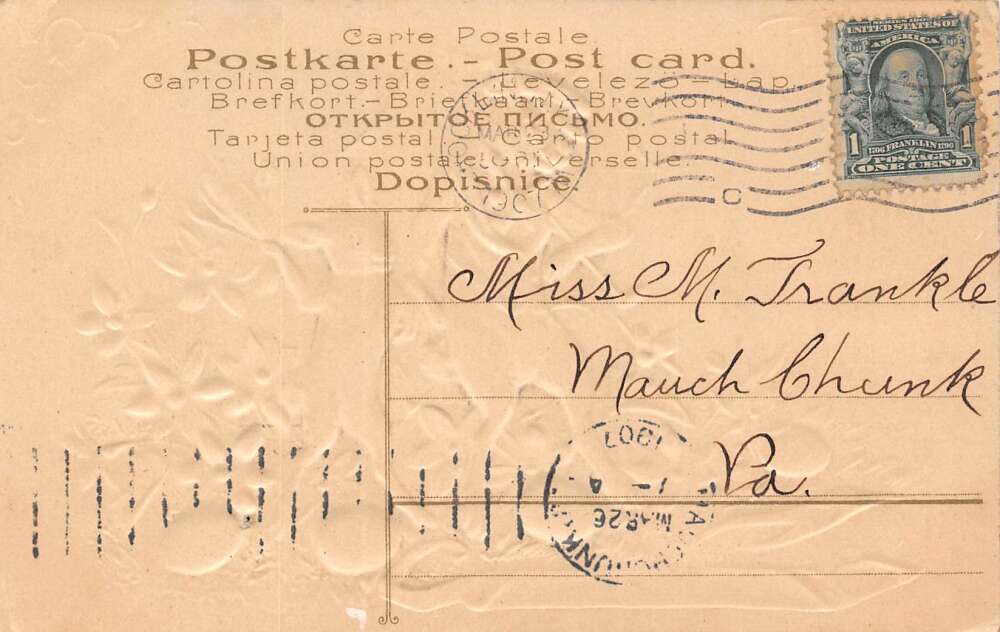 Carte Postale.
Postkarte. - Post card.
Cartolina postale. - Levelezo - Lap.
Brefkort. - Briefkaart. Brevkort
ОТКРЫТОЕ ПИСЬМО.
Tarjeta postal. Cartao postal
Union postale universelle.
Dopisnice.
SERIES 1902
UNITED STATES OF
AMERICA
1 1
1706 FRANKLIN 1790
POSTAGE
ONE CENT
MAR 23
1907
C
Miss M. Trankle
Mauch Chunk
Pa.
MAUCH CHUNK PA
MAR 26
1907